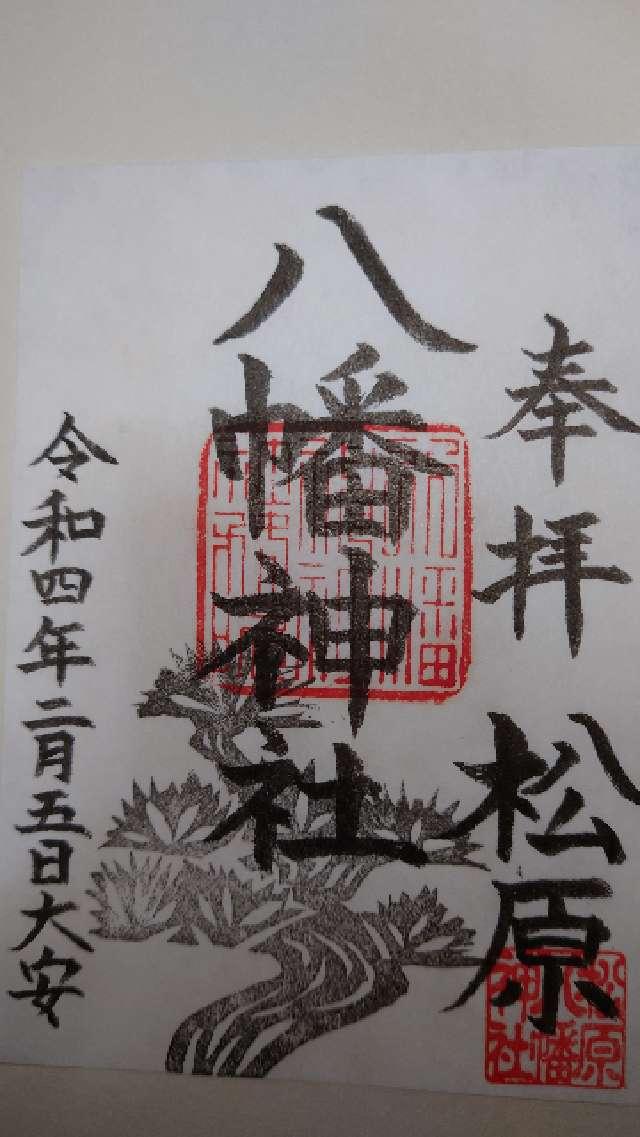 奉拝
松原
八幡神社
令和四年二月五日大安
松原
八幡
神社